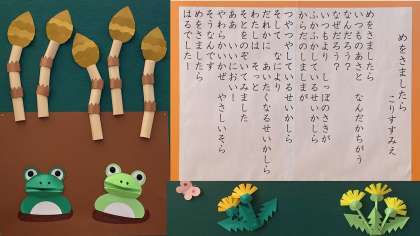 めをさましたら
こりすすみえ
めをさましたら
いつものあさと　なんだかちがう
なんだろう？
なぜだろう？
いつもより　しっぽのさきが
ふかふかしているせいかしら
からだのしましまが
つやつやしているせいかしら
そして　なにより
だれかに　あったくなるせいかしら
わたしは　そっと
そとをのぞいてみました
ああ　いいにおい！
やわらかいかぜ　やさしいそら
そうなんです
めをさましたら
はるでした！